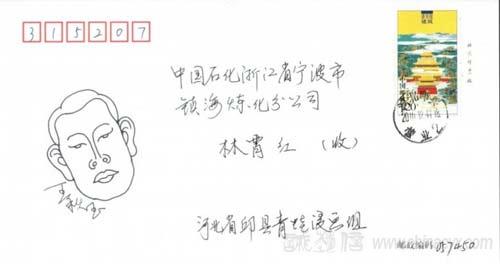 315207
中国石化浙江省宁波市
镇海炼化分公司
林霄红 (收)
河北省邱县青蛙漫画组
邮政编码 057450